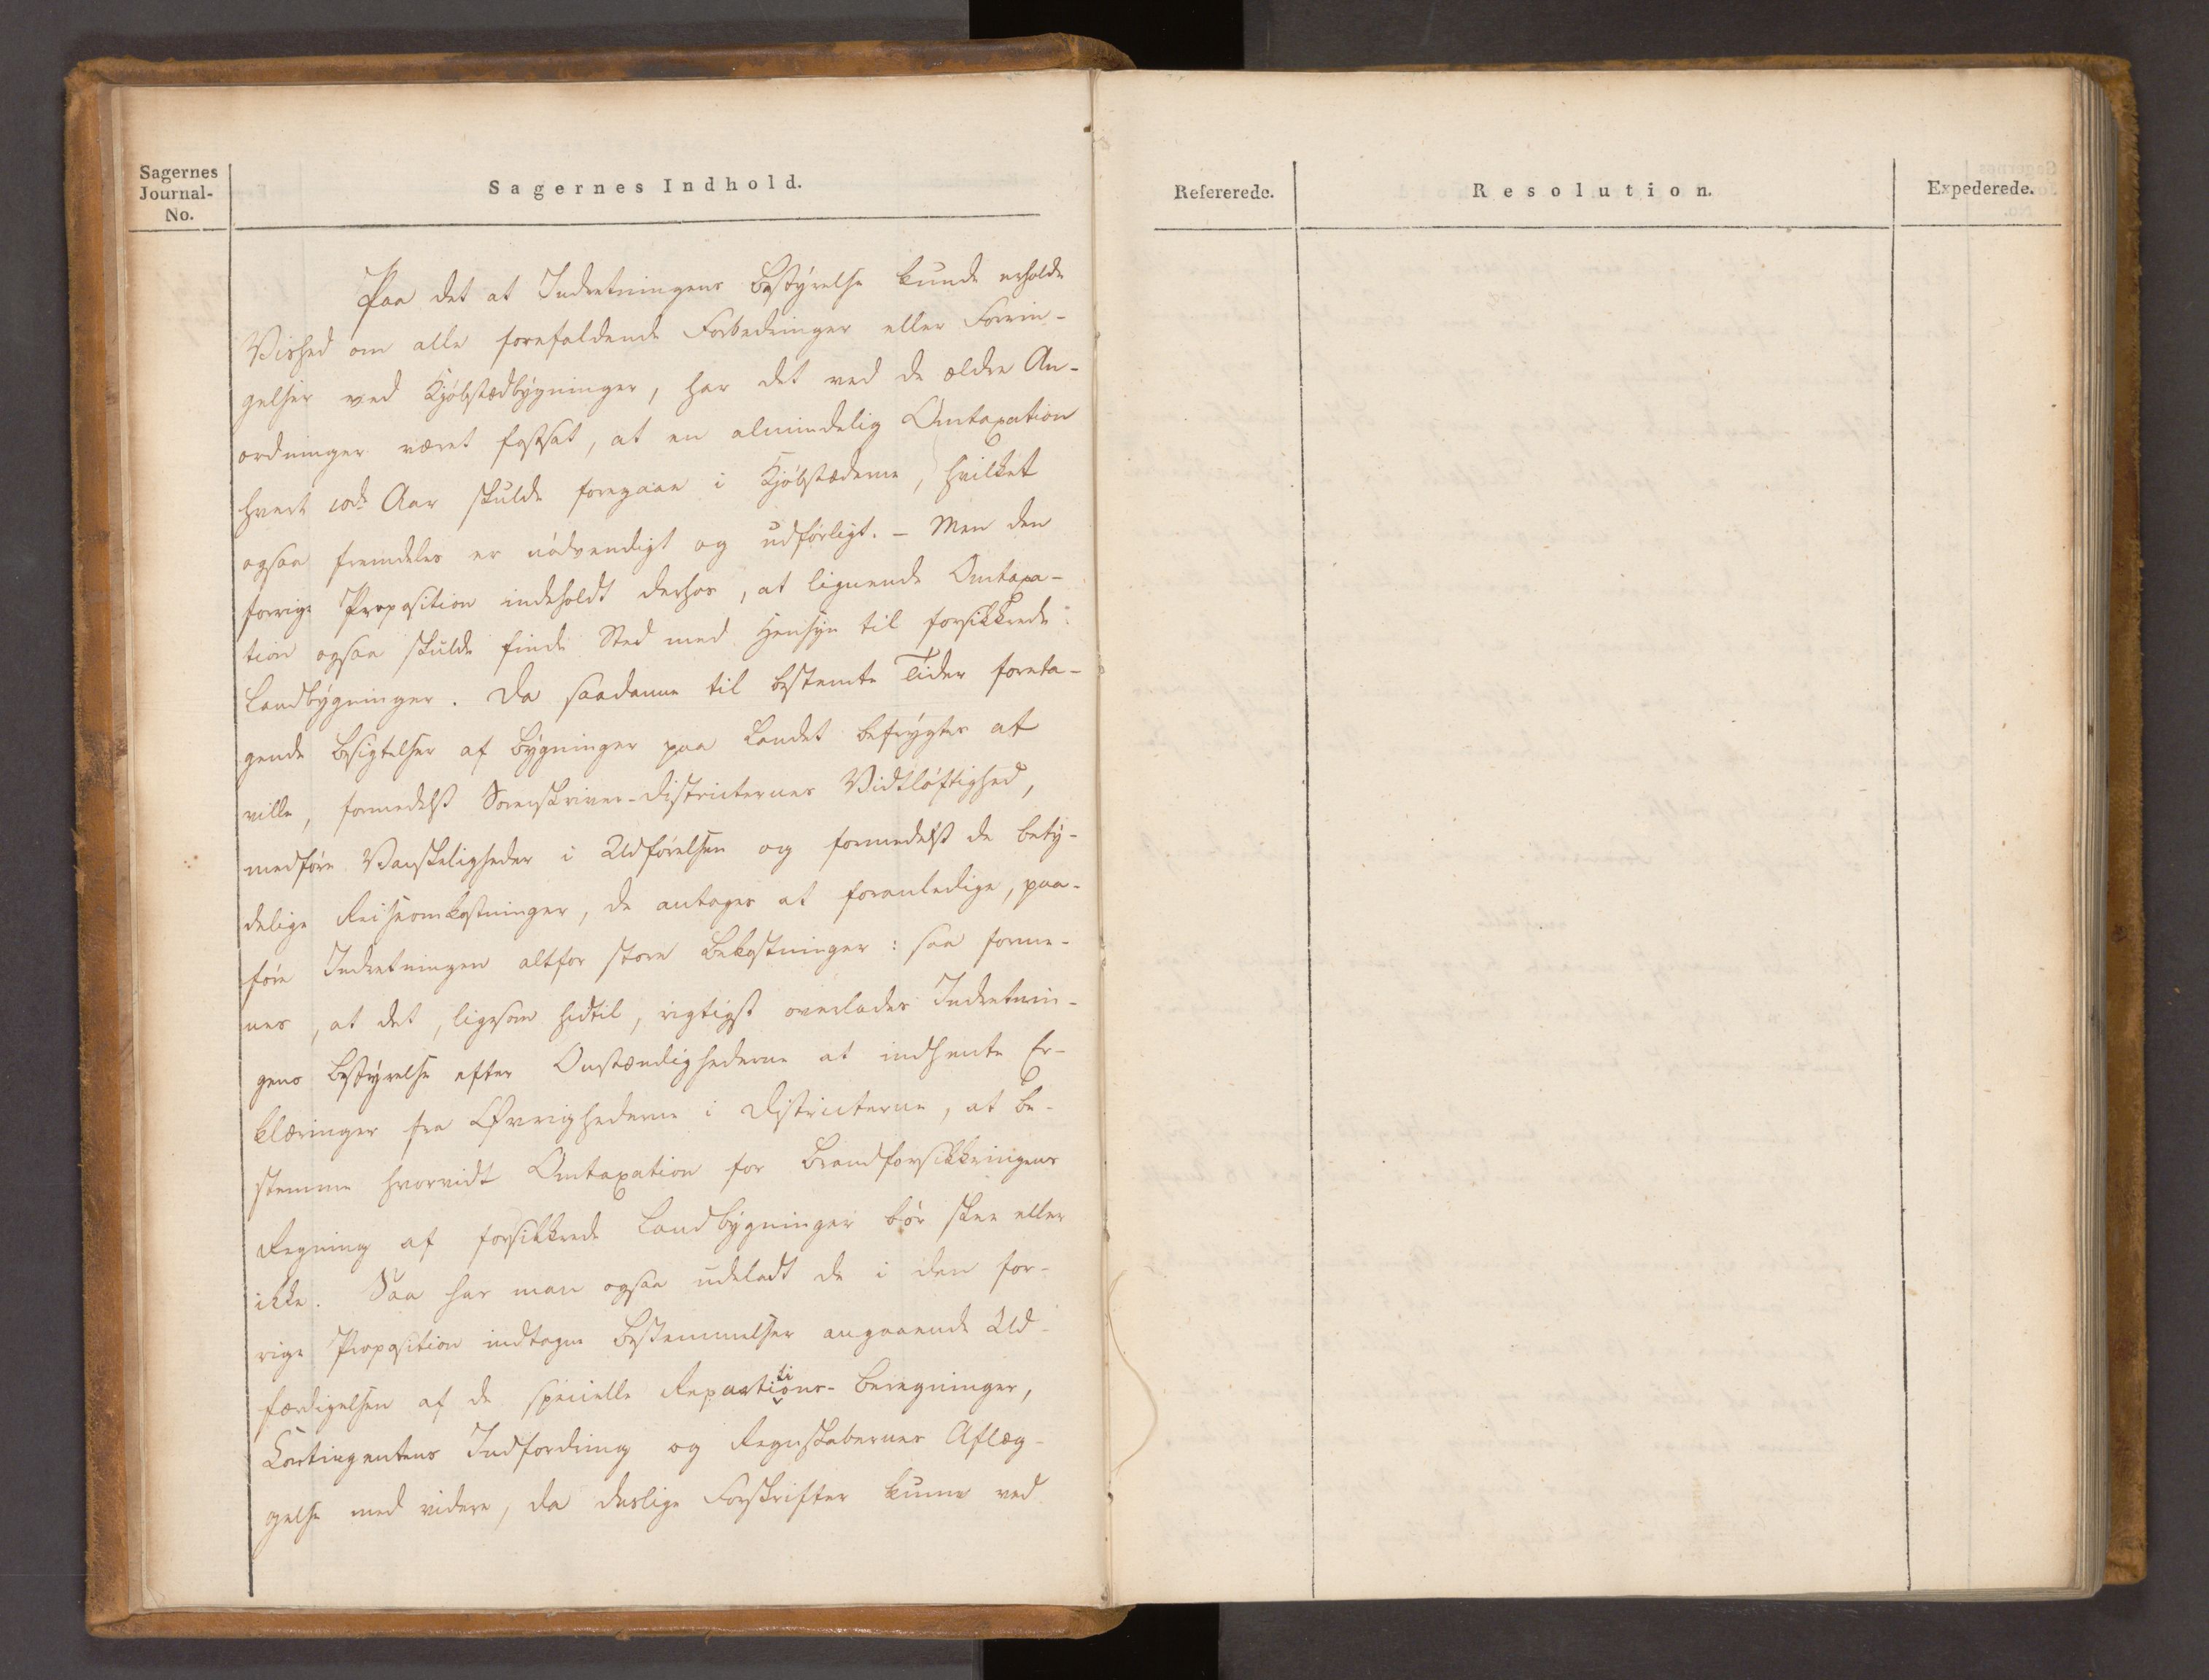 Sagernes
Journal-
No.
Sagernes Indhold.
Refererede.
Resolution.
Expederede.
Paa det at Indretningens Bestyrelse kunde erholde
Vished om alle forefaldende Forbedringer eller Forrin-
gelser ved Kjøbstædbygninger, har det ved de ældre An-
ordninger været fastsat, at en almindelig Omtaxation
hvert 10de Aar skulde foregaae i Kjøbstæderne, hvilket
ogsaa fremdeles er nødvendigt og udførligt. – Men den
forrige Proposition indeholdt derhos, at lignende Omtaxa-
tion ogsaa skulde finde Sted med Hensyn til forsikkrede
Landbygninger. Da saadanne til bestemte Tider foreta-
gende Besigtelser af Bygninger paa Landet befrygtes at
ville, formedelst Sorenskriver-Districternes Vidtløftighed,
medføre Vanskeligheder i Udførelsen og formedelst de bety-
delige Reiseomkostninger, de antages at foranledige, paa-
føre Indretningen altfor store Bekostninger: saa forme-
nes, at det, ligesom hidtil, rigtigst overlades Indretnin-
gens Bestyrelse efter Omstændighederne at indhente Er-
klæringer fra Øvrighederne i Districterne, at be-
stemme hvorvidt Omtaxation for Brandforsikkringens
Regning af forsikkrede Landbygninger bør skee eller
ikke. Saa har man ogsaa udeladt de i den for-
rige Proposition indtagne Bestemmelser angaaende Ud-
færdigelsen af de specielle Repartitions-Beregninger,
Contingentens Indfordring og Regnskabernes Aflæg-
gelse med videre, da deslige Forskrifter kunne ved